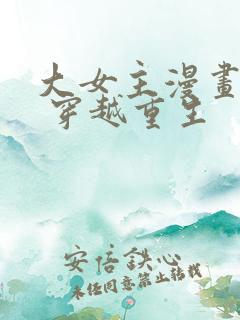 大女主漫畫
穿越重生
安倍鉄心
未经同意禁止转载